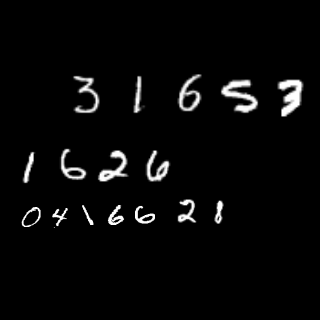 3 1 6 5 3
1 6 2 6
0 4 1 6 6 2 8